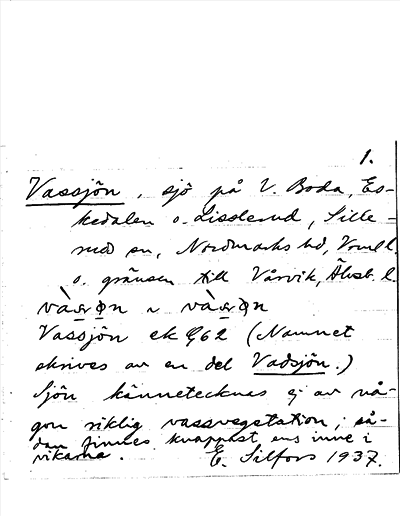 1.
Vassjön, sjö på V. Boda, Es-
kedalen o. Lisslerud, Sille-
rud sn, Nordmarks hd, Vrml.
o. gränsen till Vårvik, Älvsb. l.
Vassjön ek 962 (Namnet
skrives av en del Vadsjön.)
Sjön kännetecknas ej av nå-
gon riklig vassvegetation; så-
dan finnes knappast ens inne i
vikarna. E. Silfors 1937.